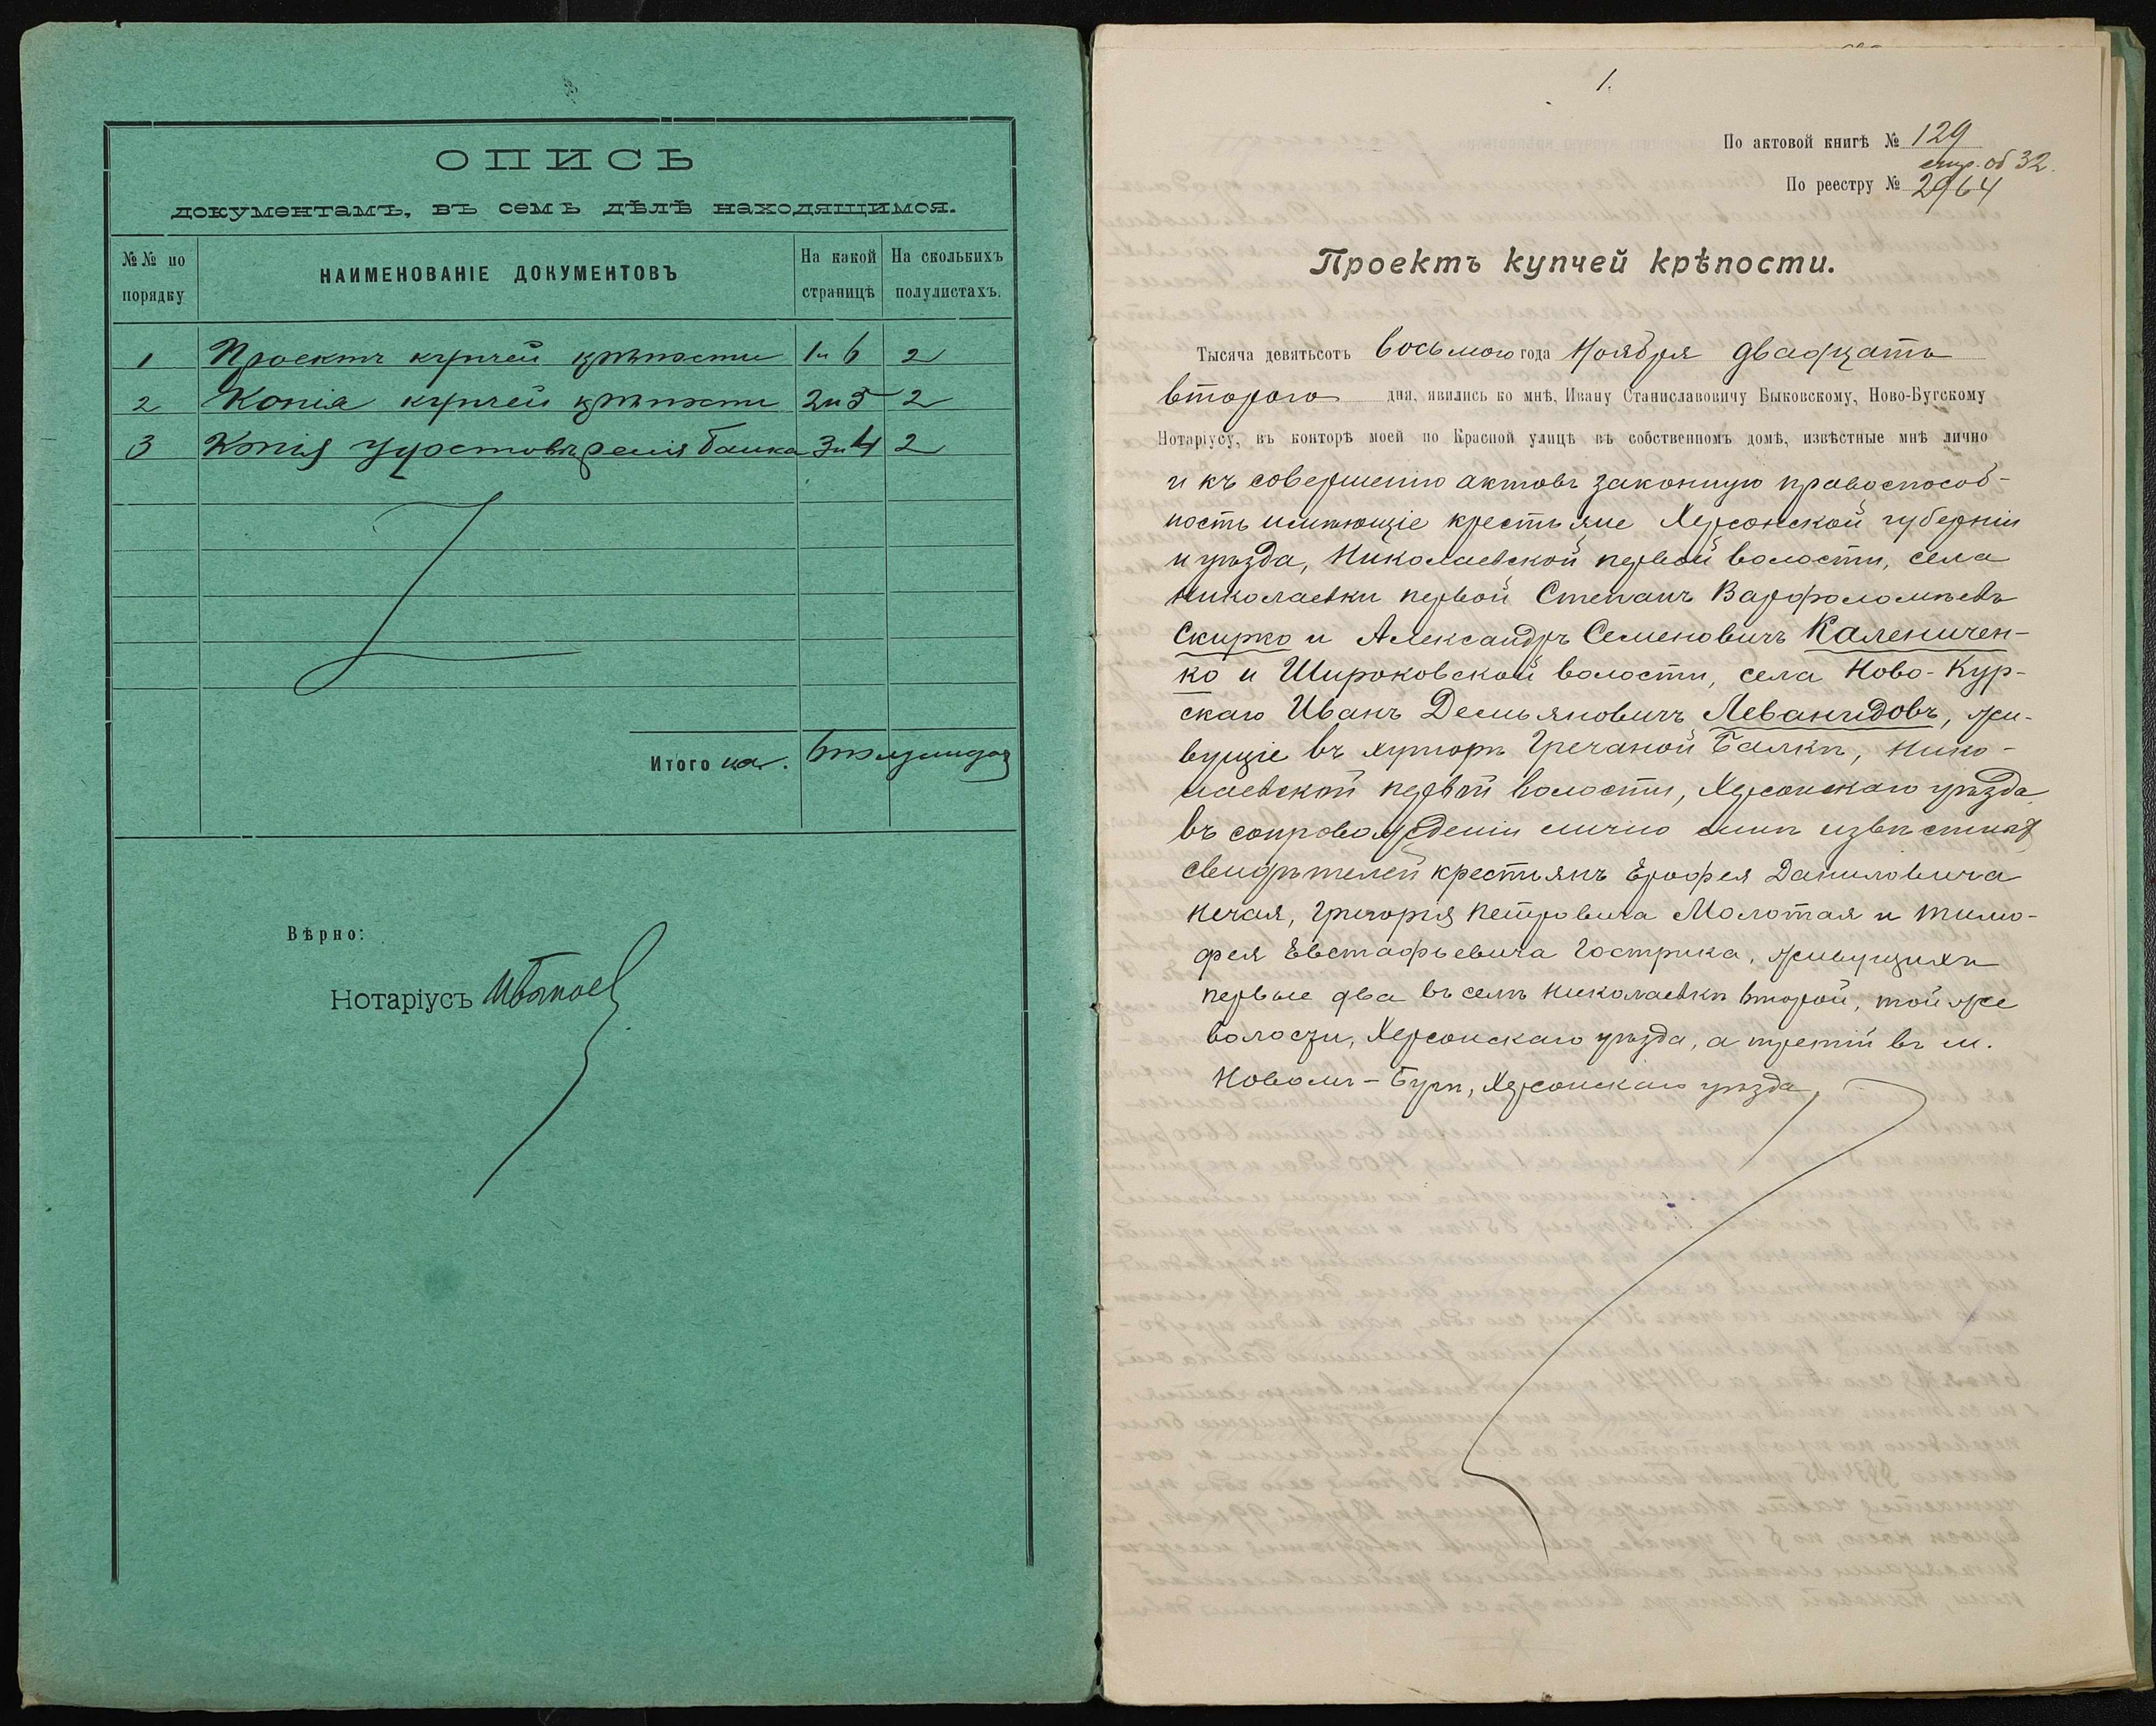 ОПИСЬ
документамъ, въ семъ дѣлѣ находящимся.
№№ по порядку
НАИМЕНОВАНІЕ ДОКУМЕНТОВЪ
На какой страницѣ
На сколькихъ полулистахъ.
1 Проектъ купчей крѣпости 1 и 6 2
2 Копіа купчей крѣпости 2 и 5 2
3 Копія удостовѣренія банка 3 и 4 2
Итого на.
Вѣрно:
Нотаріусъ
1.
По актовой книгѣ № 129
стр. об 32.
По реестру № 2964
Проектъ купчей крѣпости.
Тысяча девятьсотъ восьмого года Ноября двадцать
второго дня, явились ко мнѣ, Ивану Станиславовичу Быковскому, Ново-Бугскому
Нотаріусу, въ конторѣ моей по Красной улицѣ въ собственномъ домѣ, извѣстные мнѣ лично
и къ совершенію актовъ законную правоспособ-
ность имѣющіе крестьяне Херсонской губерніи
и уѣзда, Николаевской первой волости, села
Николаевки первой Степанъ Варфоломѣевъ
Скирко и Александръ Семеновичъ Каленичен-
ко и Широковской волости, села Ново-Кур-
скаго Иванъ Демьяновичъ Леванидовъ, жи-
вущіе въ хуторѣ Гречаной Балкѣ, Нико-
лаевской первой волости, Херсонскаго уѣзда,
въ сопровожденіи лично мнѣ извѣстныхъ
свидѣтелей крестьянъ Ерофея Даниловича
Нечая, Григорія Петровича Молотая и Тимо-
фея Евстафьевича Гострика, живущихъ
первые два въ селѣ Николаевкѣ второй, той же
волости, Херсонскаго уѣзда, а третій въ м.
Новомъ-Бугѣ, Херсонскаго уѣзда,